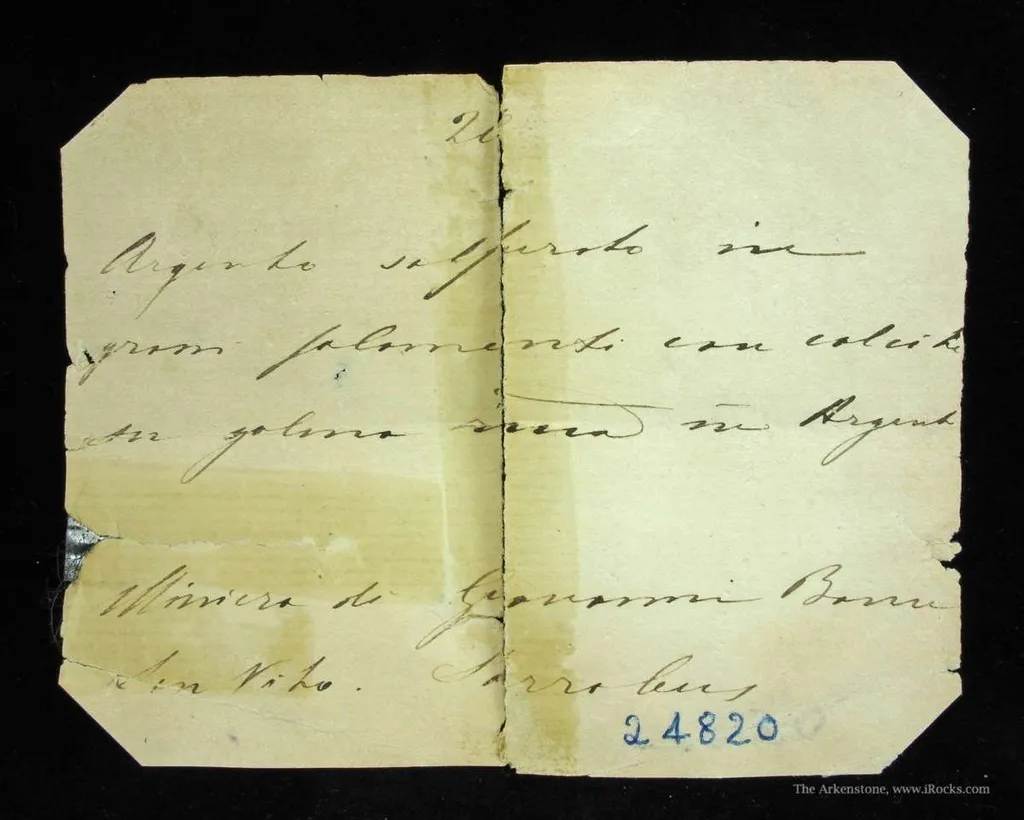 Argento solforato in
grossi filamenti con calcite
su galena ricca in Argent
Miniera di Giovanni Bonu
San Vito. Sarrabus
24820
The Arkenstone, www.iRocks.com